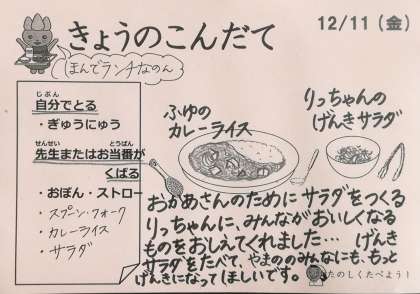 きょうのこんだて
12/11（金）
ほんでランチなのん
自分でとる
じぶん
・ぎゅうにゅう
先生またはお当番が
せんせい
とうばん
くばる
・おぼん・ストロー
・スプーン・フォーク
・カレーライス
・サラダ
ふゆの
カレーライス
りっちゃんの
げんきサラダ
おかあさんのために サラダをつくる
りっちゃんに、みんながおいしくなる
ものをおしえてくれました… げんき
サラダをたべて、やまののみんなにも、もっと
げんきになってほしいです。
たのしくたべよう！